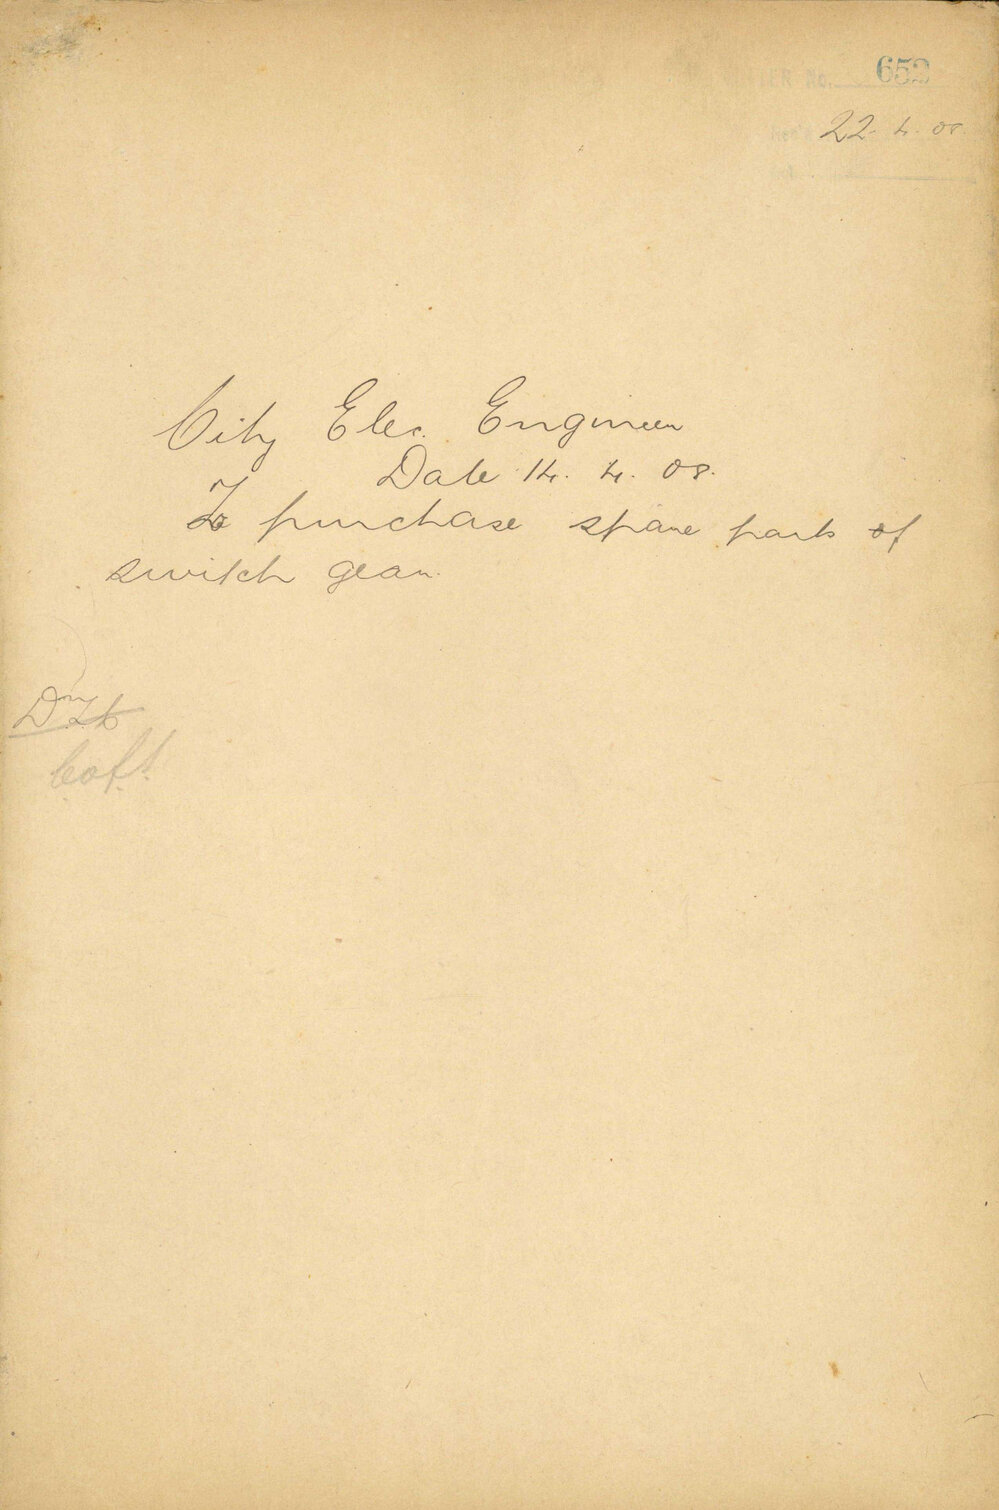 652
22. 4. 08.
City Elec. Engineer
Date 14. 4. 08.
To purchase spare parts of
switch gear.